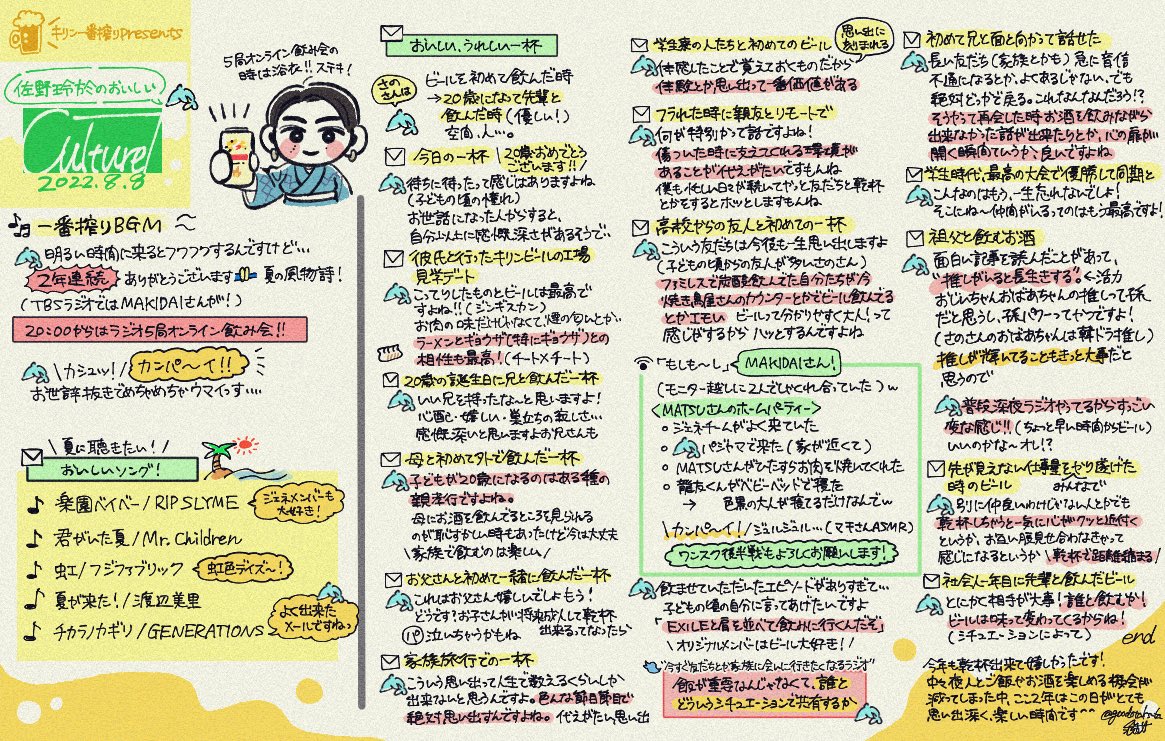 キリン一番搾りpresents
佐野玲於のおいしい
Culture!
2022.8.8
5局オンライン飲み会の
時は浴衣!!ステキ!
一番搾りBGM 〜
明るい時間に来るとフワフワするんですけど…
2年連続 ありがとうございます 夏の風物詩!
(TBSラジオではMAKIDAIさんが!)
20:00からはラジオ5局オンライン飲み会!!
\カシュッ!/ カンパ〜イ!!
お世辞抜きでめちゃめちゃウマイっす….
\夏に聴きたい!/
おいしいソング!
楽園ベイベー/RIP SLYME
ジェネメンバーも
大好き!
君がいた夏/Mr.Children
虹/フジファブリック 虹色デイズ〜!
夏が来た!/渡辺美里
チカラノカギリ/GENERATIONS
よく出来た
メールですねわっ
おいしい、うれしい一杯
さの
さんは
ビールを初めて飲んだ時
→20歳になって先輩と
飲んだ時(優しい!)
空間、人…。
今日の一杯 \20歳おめでとう
ございます!!/
待ちに待ったって感じはありますよね
(子どもの頃の憧れ)
お世話になった人からすると、
自分以上に感慨深さがあるそうで…
彼氏と行ったキリンビールの工場
見学デート
こってりしたものとビールは最高で
すよね!!(ジンギスカン)
お肉の味だけじゃなくて、煙の匂いとか…
ラーメンとギョウザ(特にギョウザ)との
相性も最高!(チート×チート)
20歳の誕生日に兄と飲んだ一杯
いい兄を持ったな〜と思いますよ!
心配・嬉しい・巣立ちの寂しさ…
感慨深いと思いますよお兄さんも
母と初めて外で飲んだ一杯
子どもが20歳になるのはある種の
親孝行ですよね。
母にお酒を飲んでるところを見られる
のが恥ずかしい時もあったけど今は大丈夫
\家族で飲むのは楽しい/
お父さんと初めて一緒に飲んだ一杯
これはお父さん嬉しいでしょもう!
どうです?お子さんが将来成人して乾杯
出来るってなったら
(パ)泣いちゃうかもね
家族旅行での一杯
こういう思い出って人生で数えるくらいしか
出来ないと思うんですよ。色んな節目節目で
絶対思い出すんですよね。代えがたい思い出
学生寮の人たちと初めてのビール
思い出に
刻まれる
体感したことで覚えておくものだから
体験とか思い出って一番価値がある
フラれた時に親友とリモートで
何が特別かって話ですよね!
傷ついた時に支えてくれる環境が
あることが代えがたいですもんね
僕も忙しい日々が続いてやっと友だちと乾杯
とかをするとホッとしますもんね
高校からの友人と初めての一杯
こういう友だちは今後も一生思い出しますよ
(子どもの頃からの友人が多いさのさん)
ファミレスで炭酸飲んでた自分たちが今
焼き鳥屋さんのカウンターとかでビール飲んでる
とかエモい ビールって分かりやすく大人!って
感じがするから ハッとするんですよね
「もしも〜し」 MAKIDAIさん!
(モニター越しに2人でしゃくれ合っていた)w
<MATSUさんのホームパーティー>
○ジェネチームがよく来ていた
○パジャマで来た(家が近くて)
○MATSUさんがひたすらお肉を焼いてくれた
○龍友くんがベビーベッドで寝た
→ 色黒の大人が寝てるだけなんでw
\カンパ〜イ!/ジュルジュル…(マキさんASMR)
ワンスク後半戦もよろしくお願いします!
飲ませていただいたエピソードがありすぎて…
子どもの頃の自分に言ってあげたいですよ
「EXILEと肩を並べて飲みに行くんだぞ」
\オリジナルメンバーはビール大好き!/
"今すぐ友だちとか家族に会いに行きたくなるラジオ"
飯が重要なんじゃなくて、誰と
どういうシチュエーションで共有するか
初めて兄と面と向かって話せた
長い友だち(家族とかも)急に音信
不通になるとか、よくあるじゃない、でも
絶対どっかで戻る。これなんなんだろう!?
そうやって再会した時お酒を飲みながら
出来なかった話が出来たりとか、心の扉が
開く瞬間ていうか、良いですよね
学生時代、最高の大会で優勝して同期と
こんなのはもう、一生忘れないでしょ!
そこにね〜仲間がいるってのはもう最高ですよ!
祖父と飲むお酒
面白い記事を読んだことがあって、
"推しがいると長生きする"。←活力
おじいちゃんおばあちゃんの推しって孫
だと思うし、孫パワーってヤツですよ!
(さのさんのおばあちゃんは韓ドラ推し)
推しが輝いてることもきっと大事だと
思うので
普段深夜ラジオやってるからすっごい
変な感じ!!(ちょっと早い時間からビール)
いいのかな〜オレ!?
先が見えない仕事量をやり遂げた
時のビール みんなで
別に仲良いわけじゃない人とかでも
乾杯しちゃうと一気に心がグッと近付く
というか、お互い腹見せ合わなきゃって
感じになるというか \乾杯で距離縮まる/
社会人一年目に先輩と飲んだビール
とにかく相手が大事!誰と飲むか!
ビールは味って変わってくるからね!
(シチュエーションによって)
end
今年も乾杯出来て嬉しかったです!
中々夜人とご飯やお酒を楽しめる機会が
減ってしまった中、ここ2年はこの日がとても
思い出深く、楽しい時間です^^